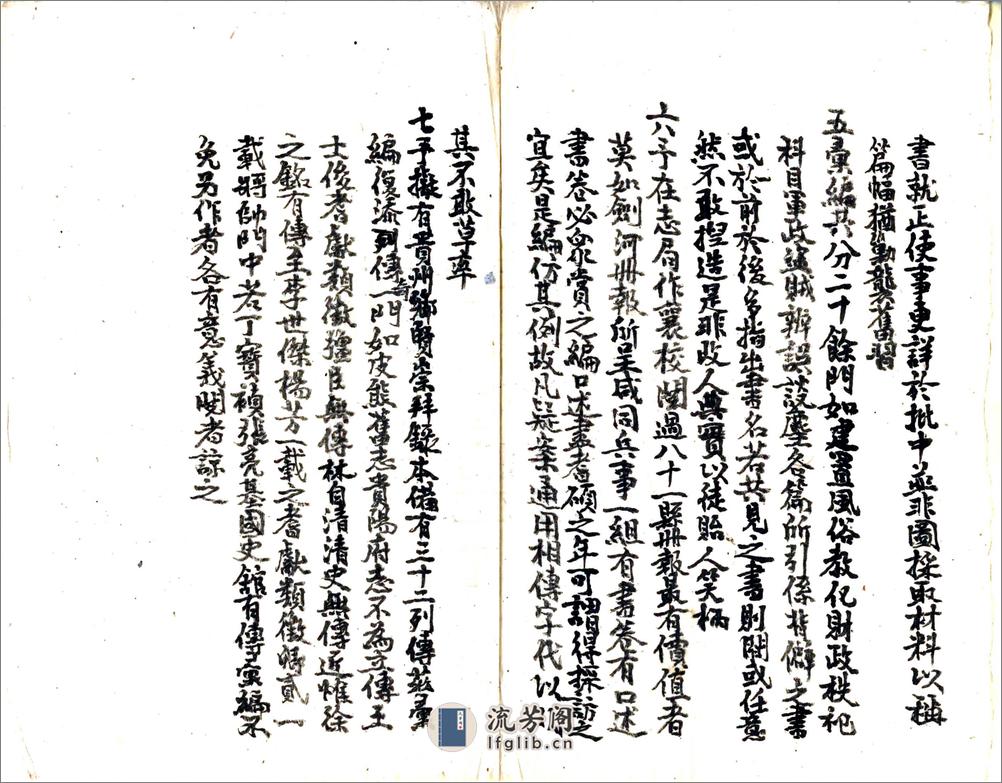 書就正使事更詳於批中並非圖採取材料以補
篇幅猶勦襲舊習
五彙編共分二十餘門如建置風俗教化財政秩祀
科目軍政盜賊辨誤談麈各篇所引係背僻之書
或於前於後多指出書名若共見之書則闕或任意
然不敢揑造是非改人無實以徒貽人笑柄
六予在志局作襄校閱過八十一縣冊報最有價值者
莫如劍河冊報所呈咸同兵事一組有書卷有口述
書卷必衆賞之編口述盡耆碩之年可謂得採訪之
宜矣是編仿其例故凡疑案通用相傳字代以
其不敢草率
七予擬有貴州鄉賢崇拜錄本備有三十二列傳茲彙
編復添列傳一門如皮熊舊志貴陽府志不為立傳王
士俊耆獻類徵疆臣無傳林自清清史無傳近惟徐
之銘有傳至李世傑楊芳一載之耆獻類徵得貳一
載將帥門中若丁寶禎張亮基國史舘有傳彙編不
免另作者各有意義閱者諒之
流芳阁
lfglib.cn